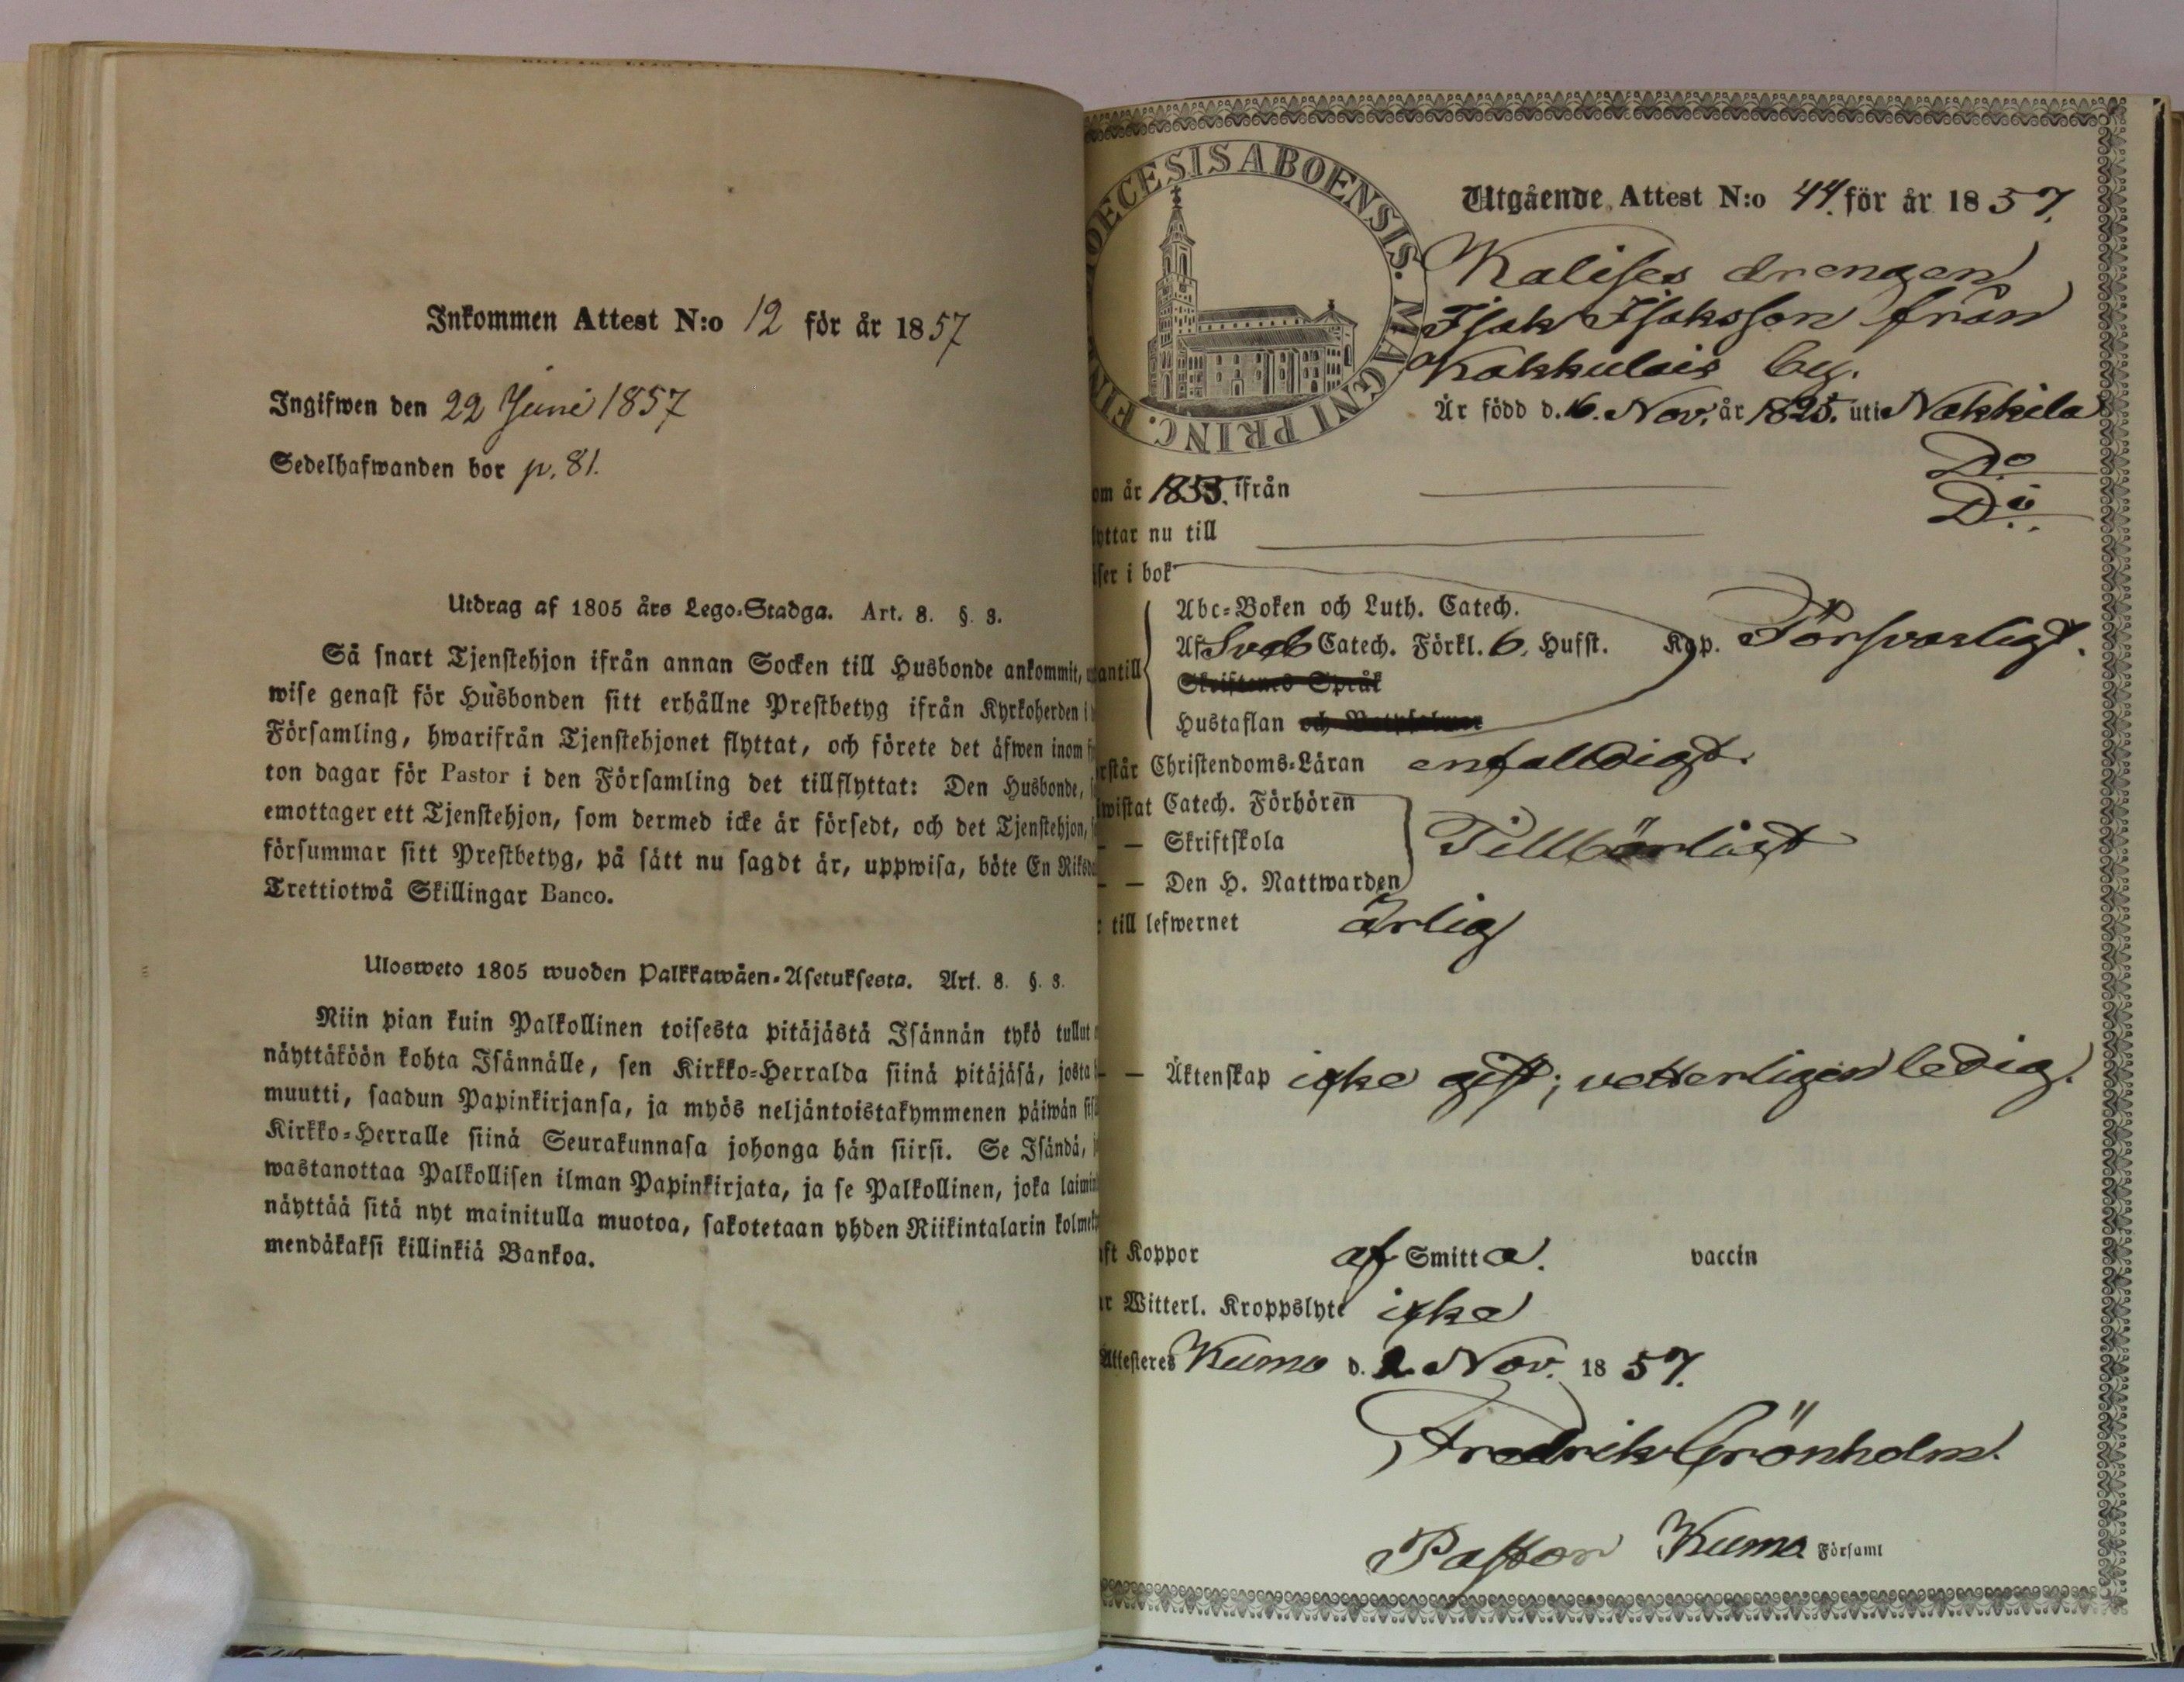 Inkommen Attest N:o 12 för år 1857
Ingifwen den 22 Juni 1857
Sedelhafwanden bor p. 81.
Utdrag af 1805 års Lego-Stadga. Art. 8. §. 3.
Så snart Tjenstehjon ifrån annan Socken till Husbonde ankommit,
wise genast för Husbonden sitt erhållne Prestbetyg ifrån Kyrkoherden i
Församling, hwarifrån Tjenstehjonet flyttat, och förete det äfwen inom
ton dagar för Pastor i den Församling det tillflyttat: Den Husbonde,
emottager ett Tjenstehjon, som dermed icke är försedt, och det Tjenstehjon,
försummar sitt Prestbetyg, på sätt nu sagdt är, uppwisa, böte En Riksda
Trettiotwå Skillingar Banco.
Ulosweto 1805 wuoden Palkkawäen-Asetuksesta. Art. 8. §. 3.
Niin pian kuin Palkollinen toisesta pitäjästä Isännän tykö tullut
näyttäköön kohta Isännälle, sen Kirkko-Herralda siinä pitäjäsä, josta
muutti, saadun Papinkirjansa, ja myös neljäntoistakymmenen päiwän
Kirkko-Herralle siinä Seurakunnasa johonga hän siirsi. Se Isändä,
wastanottaa Palkollisen ilman Papinkirjata, ja se Palkollinen, joka laimin
näyttää sitä nyt mainitulla muotoa, sakotetaan yhden Riikintalarin kolmeky
mendäkaksi killinkiä Bankoa.
DIOECESIS ABOENSIS. MAGNI PRINC. FIN
Utgående Attest N:o 44. för år 1857.
Kalises drengen
Isak Isaksson från
Kakkulais by.
Är född d. 6. Nov. år 1825. uti Nakkila
om år 1853. ifrån Do
yttar nu till Do
iser i bok
Abc-Boken och Luth. Catech.
antill Af Sveb Catech. Förkl. 6. Hufst. Kap. Försvarligt.
Skriftenes Språk
Hustaflan och Botpsalmer
rstår Christendoms-Läran enfalldigt.
wistat Catech. Förhören
— — Skriftskola Tillbörligt
— — Den H. Nattwarden
till lefwernet ärlig
— — Äktenskap icke gift; vetterligen ledig.
ft Koppor af Smitta. vaccin
r Witterl. Kroppslyte icke
Attesteres Kumo d. 2 Nov. 1857.
Fredrik Grönholm.
Pastor Kumo Församl